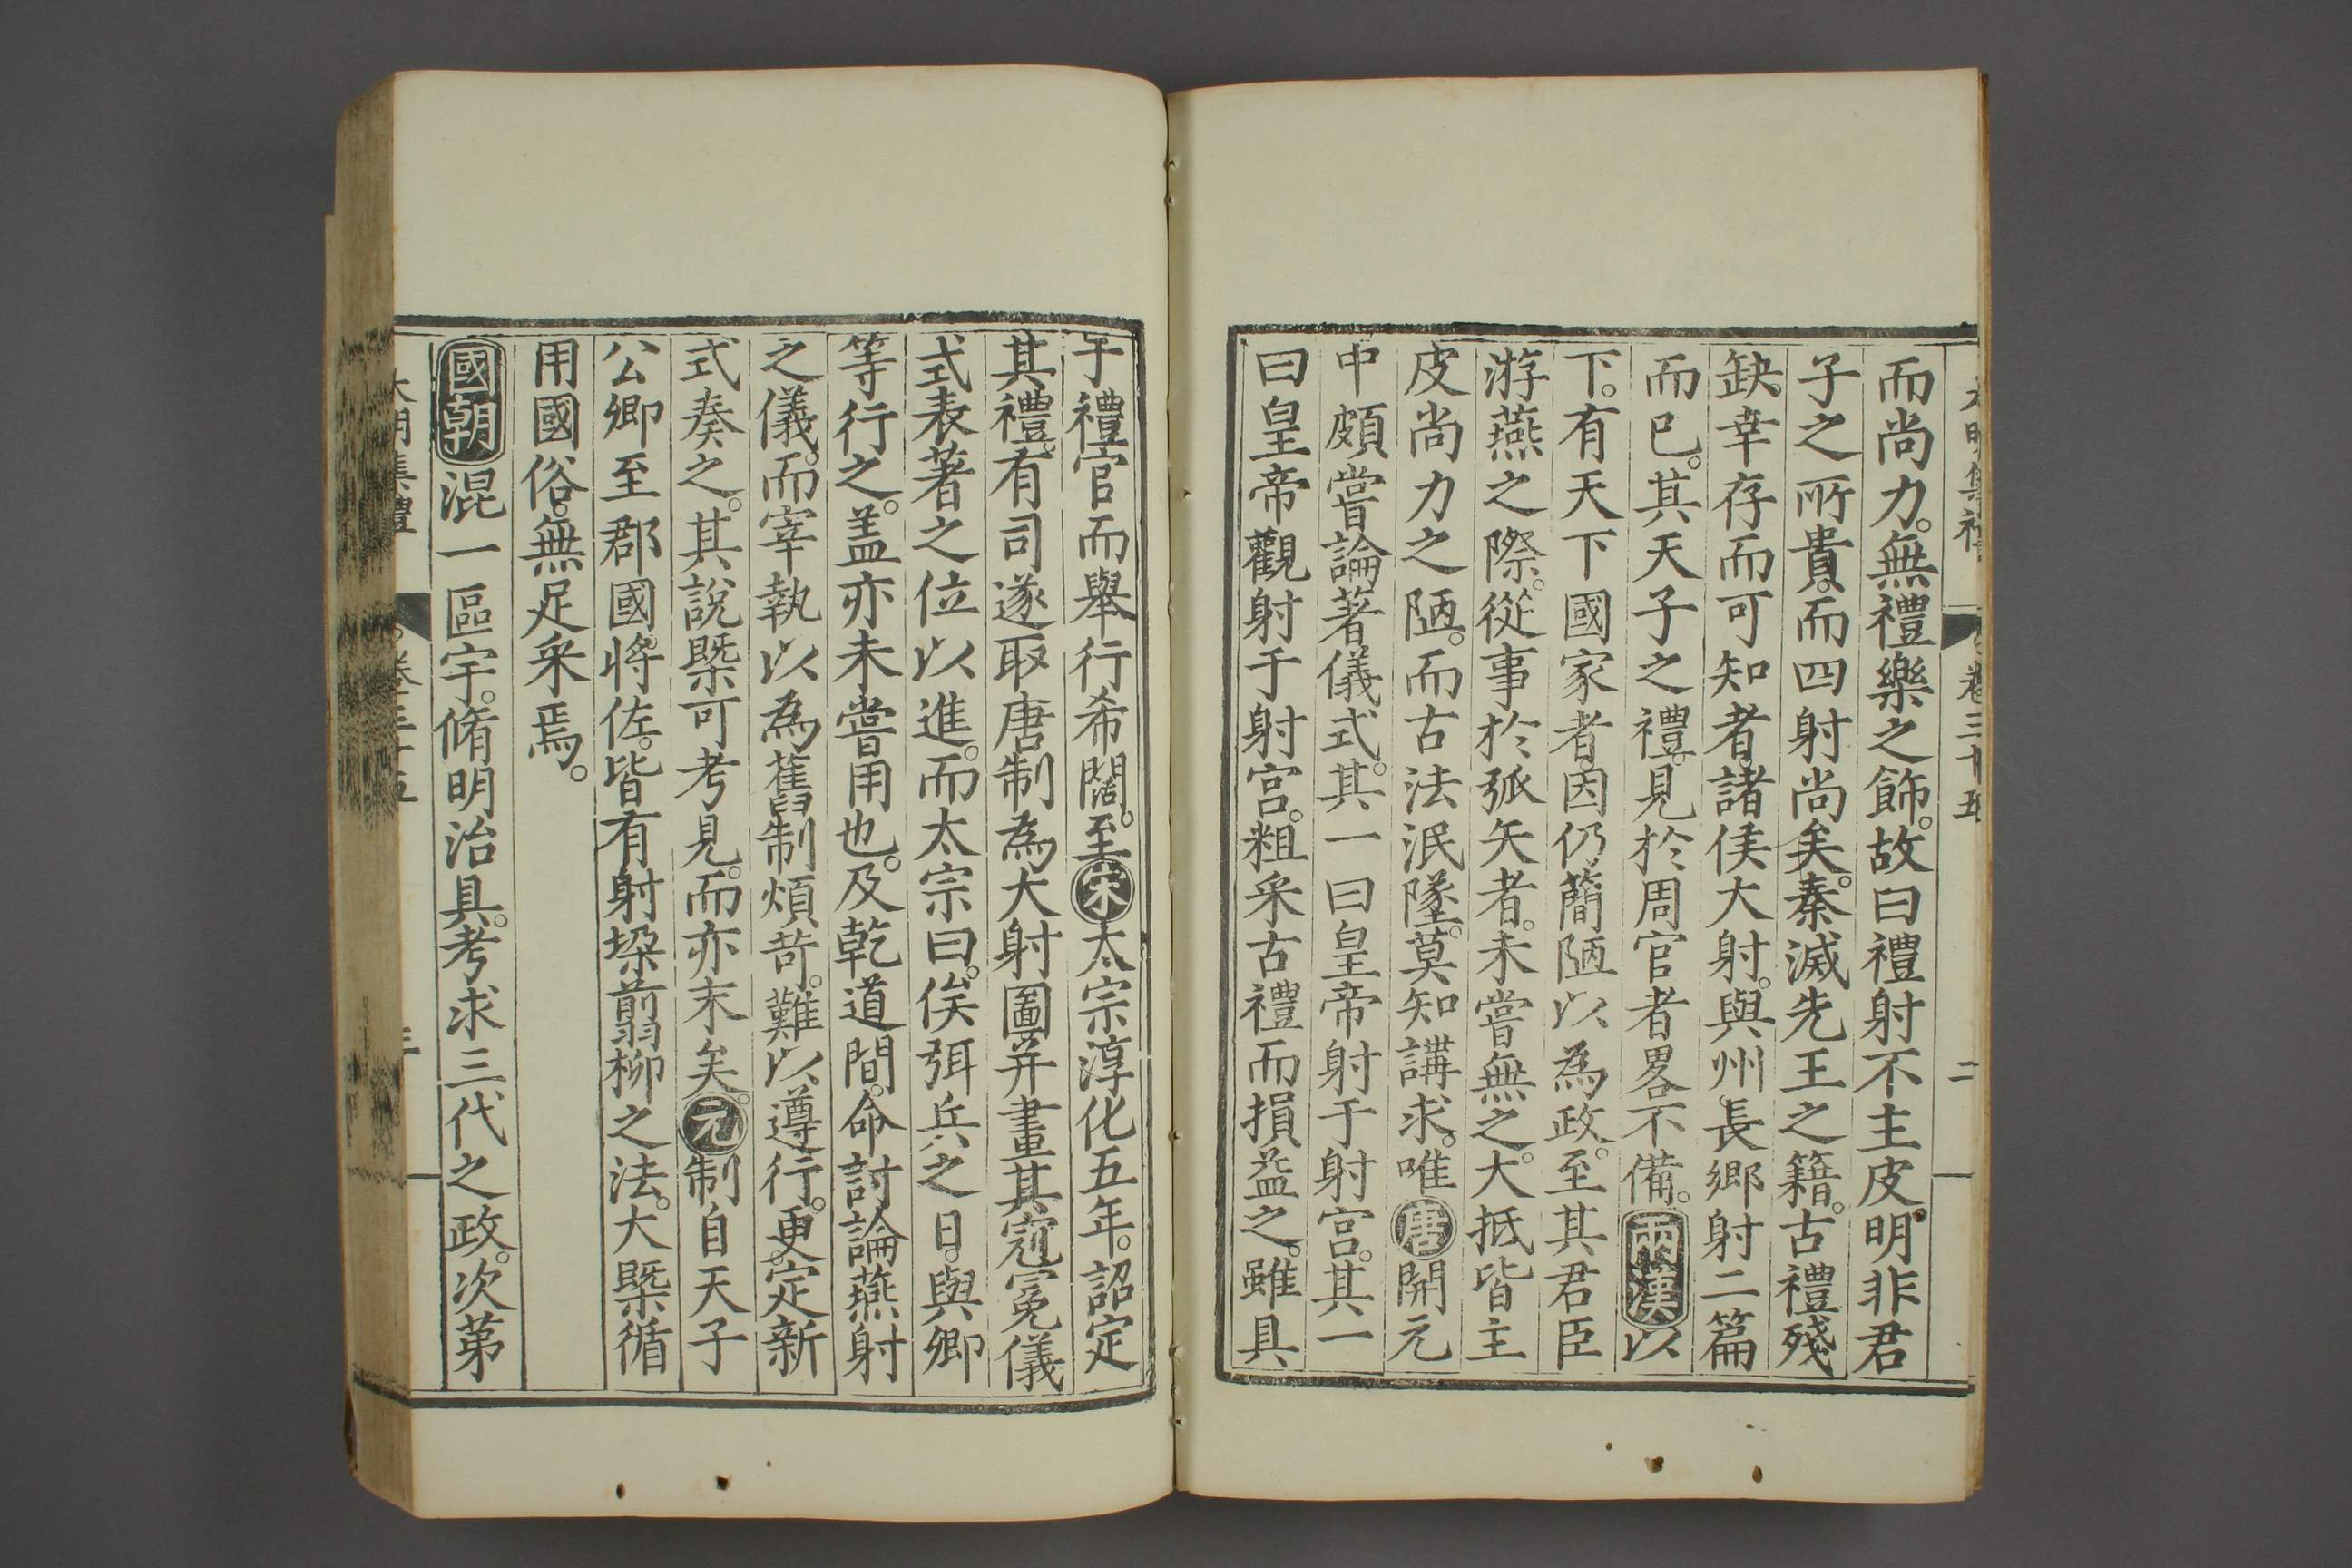 大明集禮 卷三十五 二
而尚力。無禮樂之飾。故曰禮射不主皮。明非君
子之所貴。而四射尚矣。秦滅先王之籍。古禮殘
缺。幸存而可知者。諸侯大射。與州長鄉射二篇
而已。其天子之禮。見於周官者畧不備。兩漢以
下。有天下國家者。因仍簡陋以為政。至其君臣
游燕之際。從事於弧矢者。未嘗無之。大抵皆主
皮尚力之陋。而古法泯墜。莫知講求。唯唐開元
中頗嘗論著儀式。其一曰皇帝射于射宮。其一
曰皇帝觀射于射宮。粗采古禮而損益之。雖具
于禮官而舉行希闊。至宋太宗淳化五年。詔定
其禮。有司遂取唐制為大射圖并畫其冠冕儀
式表著之位以進。而太宗曰。俟弭兵之日。與卿
等行之。盖亦未嘗用也。及乾道間。命討論燕射
之儀。而宰執以為舊制煩苛。難以遵行。更定新
式奏之。其說槩可考見。而亦末矣。元制自天子
公卿至郡國。將佐。皆有射垜翦柳之法。大槩循
用國俗。無足采焉。
國朝混一區宇。脩明治具。考求三代之政。次第
大明集禮 卷三十五 三